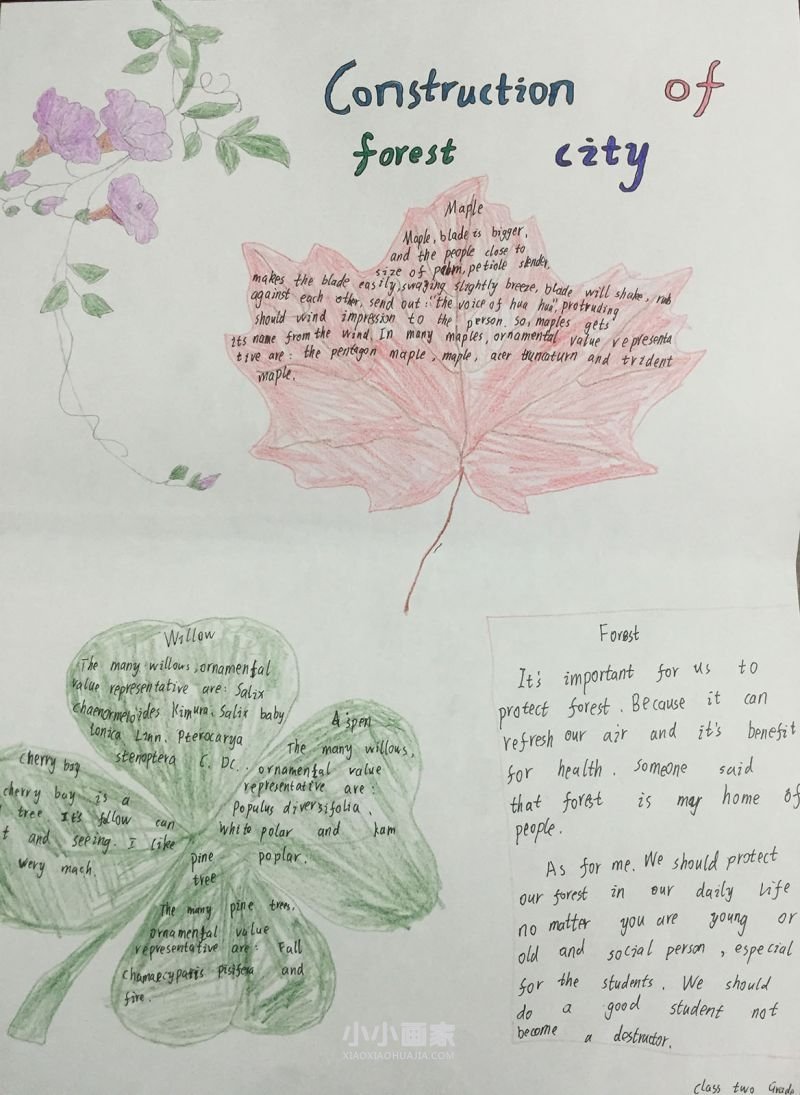 Construction of
forest city
Maple
Maple, blade is bigger,
and the people close to
size of palm, petiole slender,
makes the blade easily swaying slightly breeze, blade will shake, rub
against each other, send out: "the voice of hua hua", protruding
should wind impression to the person. So, maples gets
its name from the wind. In many maples, ornamental value representa
tive are: the pentagon maple, maple, acer truncaturn and trident
maple.
Willow
The many willows, ornamental
value representative are: Salix
chaenormeloides Kimura. Salix baby
lonica Linn. Pterocarya
stenoptera C. DC.
Aspen
The many willows,
ornamental value
representative are:
Populus diversifolia,
white polar and
poplar.
cherry bay
cherry bay is a
tree. It's follow can
t and seeing. I like
Wery mach.
pine
tree
The many pine trees,
ornamental value
representative are: Fall
chamaecyparis pisifera and
fire.
Forest
It's important for us to
protect forest. Because it can
refresh our air and it's benefit
for health. Someone said
that forest is my home of
people.
As for me. We should protect
our forest in our daily life
no matter you are young or
old and social person, especial
for the students. We should
do a good student not
become a destructor.
小小画家
XIAOXIAOHUAJIA.COM
Class two Grade